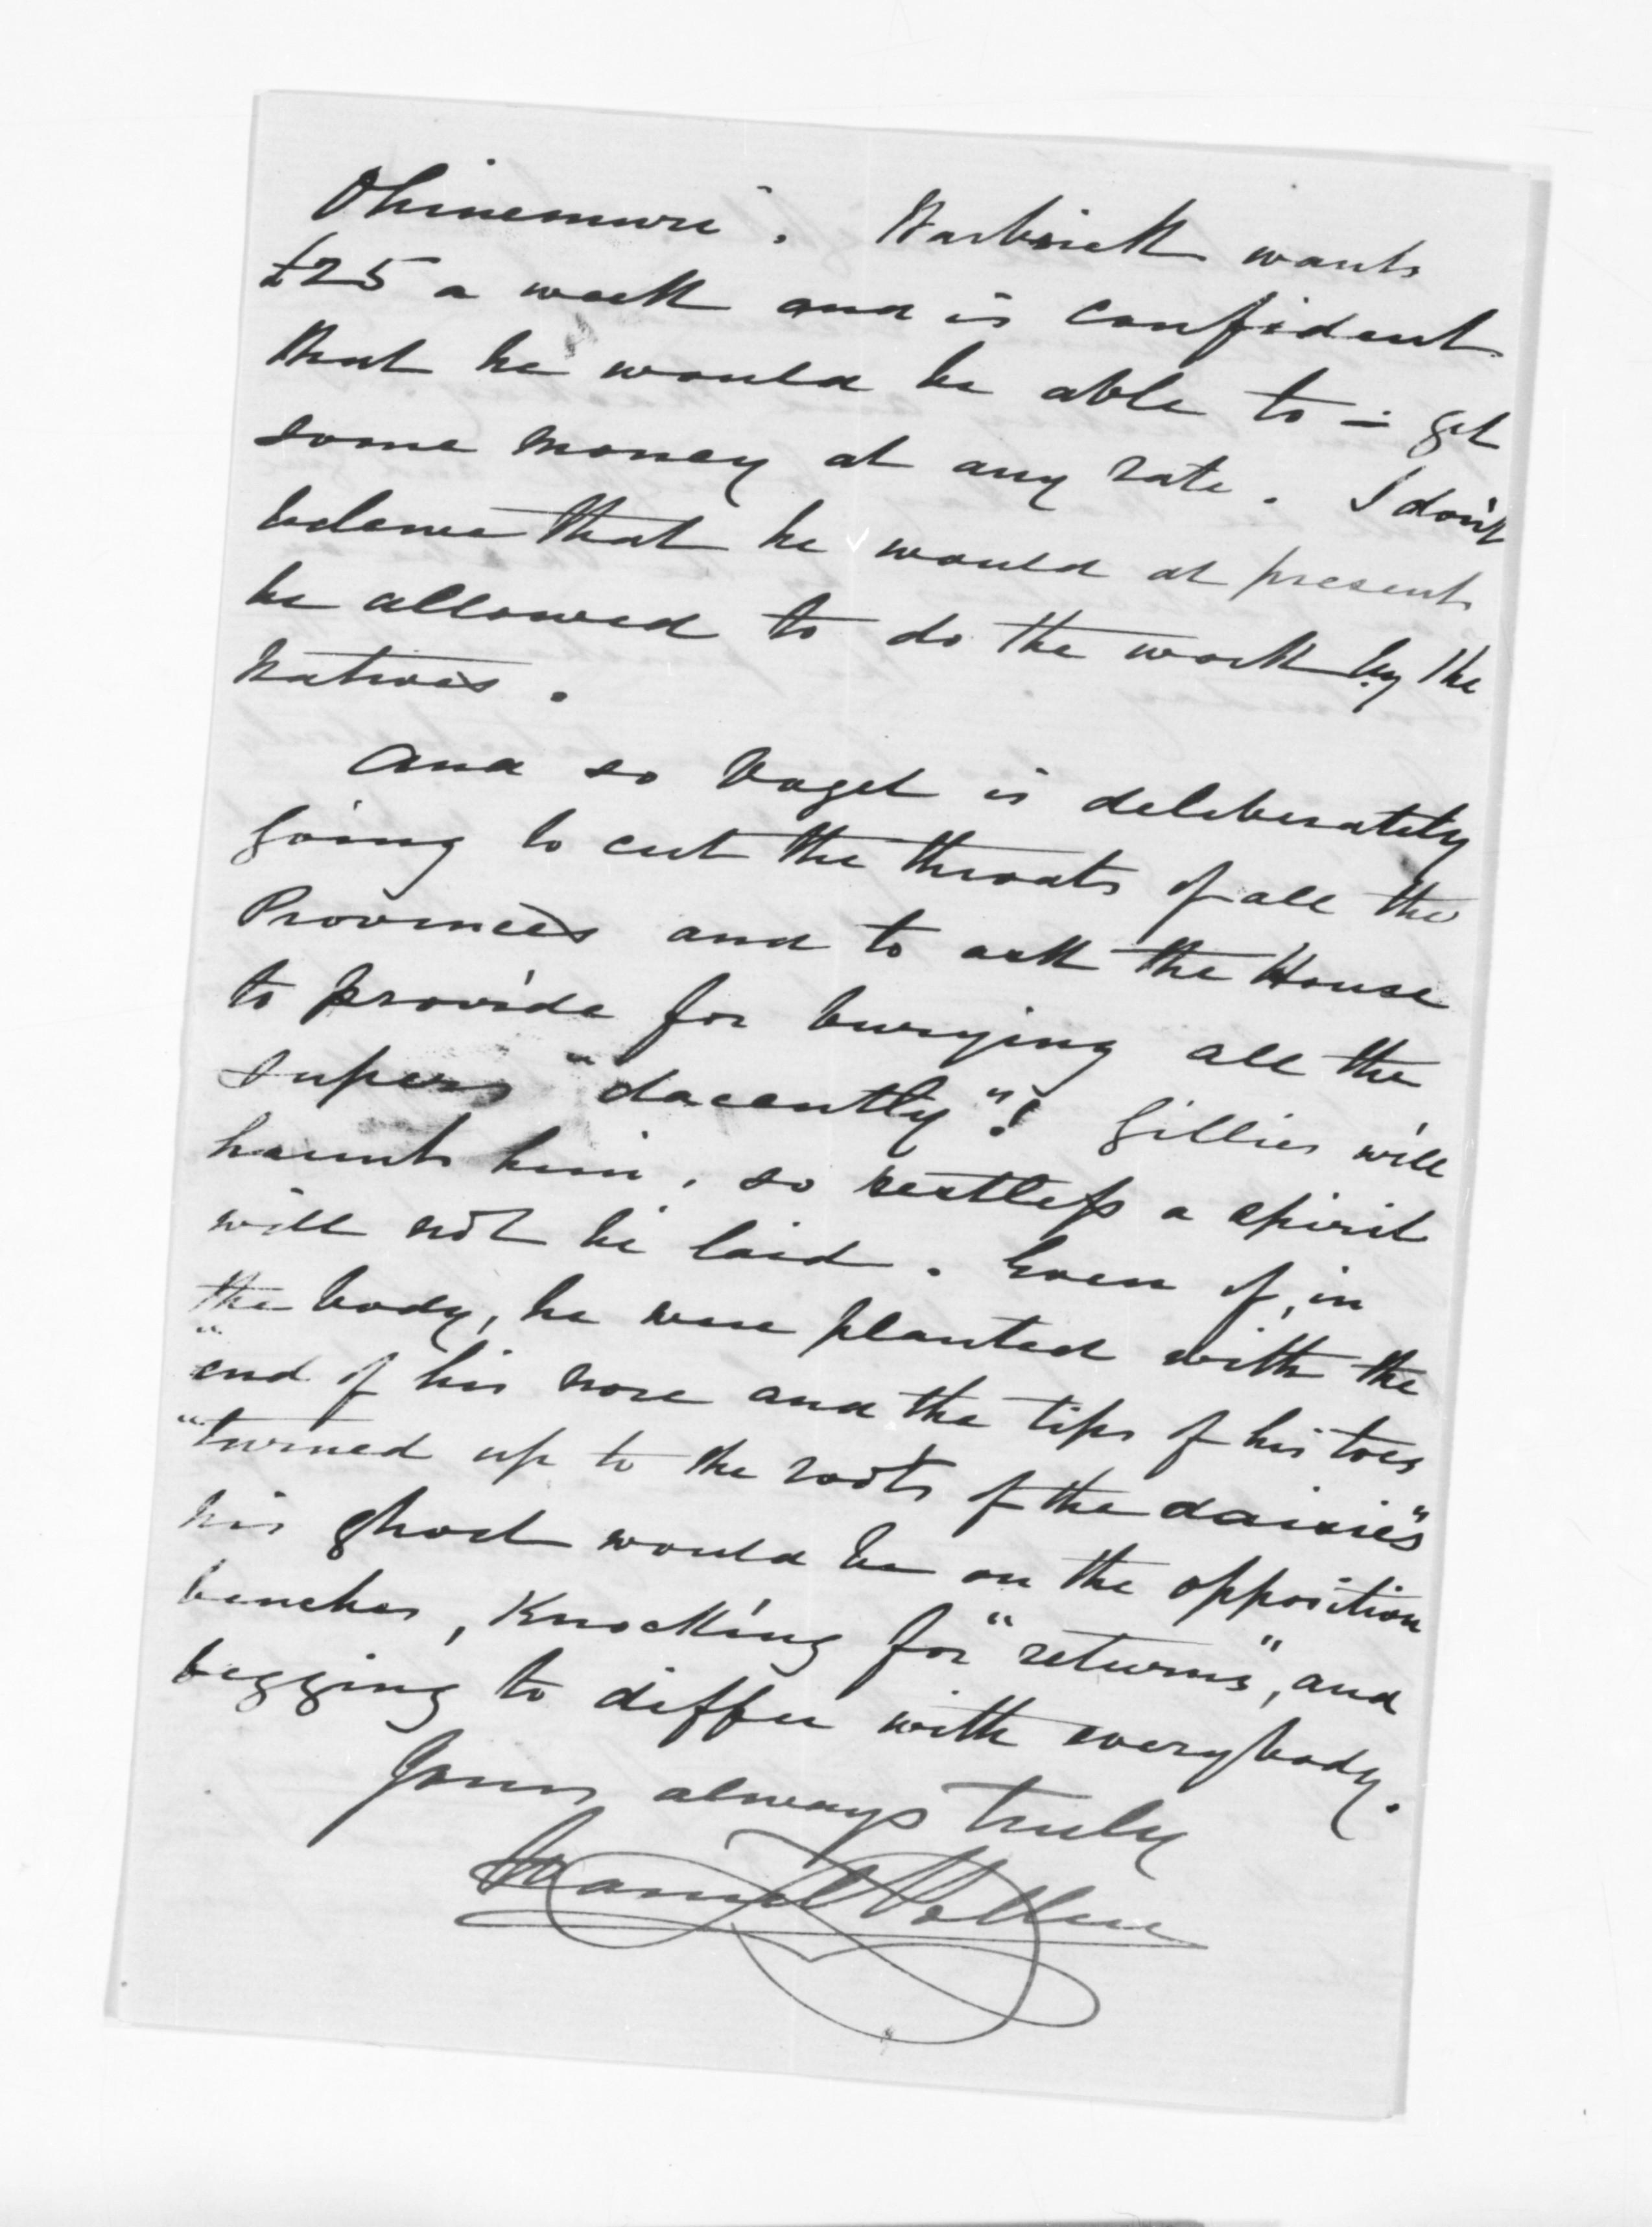 Ohinemuri. Warbrick wants
£25 a week and is confident
that he would be able to - get
some money at any rate. I don't
believe that he would at present
be allowed to do the work by the
Natives.
And so Vogel is deliberately
going to cut the throats of all the
Provinces and to ask the House
to provide for burying all the
supers "dacently"! Gillies will
haunt him, so restless a spirit
will not be laid. Even if, in
the body, he were planted with the
"end of his nose and the tips of his toes
"turned up to the roots of the daisies"
his ghost would be on the opposition
benches, knocking for "returns", and
begging to differ with everybody.
Yours always truly
Daniel Pollen